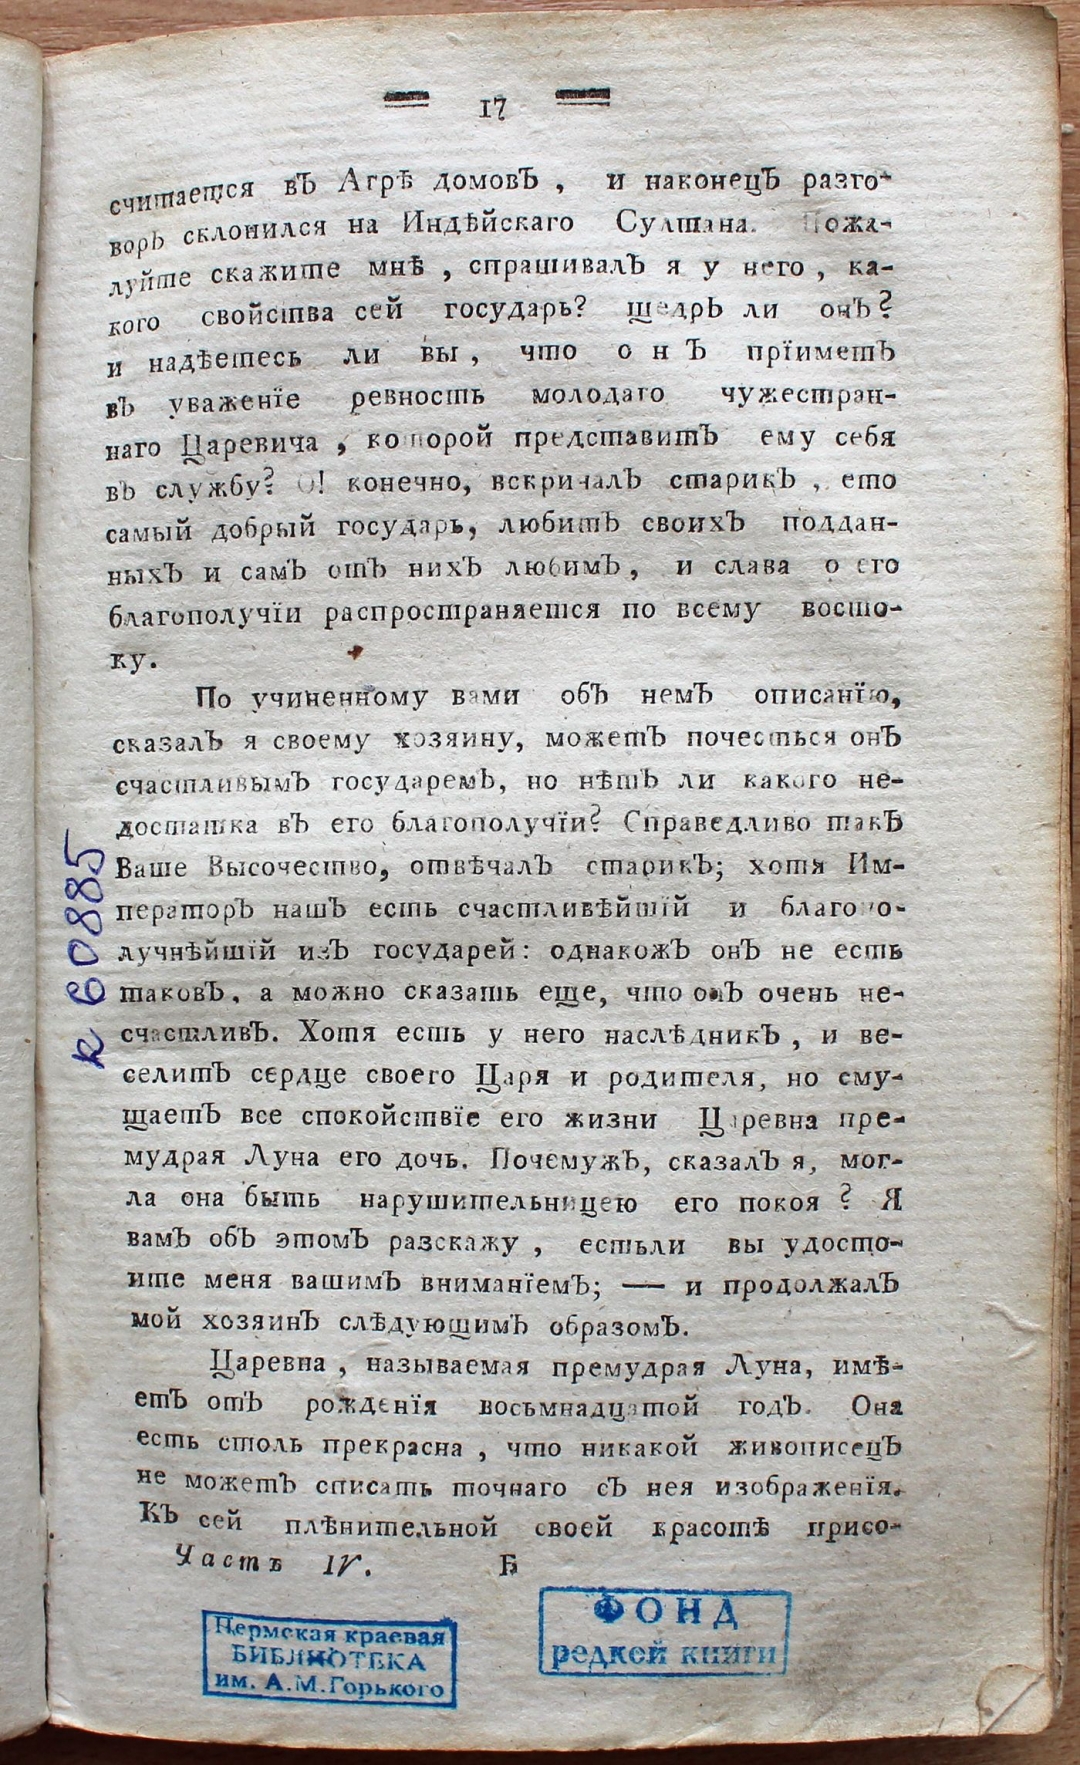 17
считается въ Агрѣ домовъ, и наконецъ разго-
воръ склонился на Индѣйскаго Султана. Пожа-
луйте скажите мнѣ, спрашивалъ я у него, ка-
кого свойства сей государь? щедръ ли онъ?
и надѣетесь ли вы, что онъ прїиметъ
въ уваженїе ревность молодаго чужестран-
наго Царевича, которой представитъ ему себя
въ службу? О! конечно, вскричалъ старикъ, ето
самый добрый государь, любитъ своихъ поддан-
ныхъ и самъ отъ нихъ любимъ, и слава о его
благополучїи распространяется по всему восто-
ку.
По учиненному вами объ немъ описанїю,
сказалъ я своему хозяину, можетъ почесться онъ
счастливымъ государемъ, но нѣтъ ли какого не-
достатка въ его благополучїи? Справедливо такъ
Ваше Высочество, отвѣчалъ старикъ; хотя Им-
ператоръ нашъ есть счастливѣйшїй и благопо-
лучнѣйшїй изъ государей: однакожъ онъ не есть
таковъ, а можно сказать еще, что онъ очень не-
счастливъ. Хотя есть у него наслѣдникъ, и ве-
селитъ сердце своего Царя и родителя, но сму-
щаетъ все спокойствїе его жизни Царевна пре-
мудрая Луна его дочь. Почемужъ, сказалъ я, мог-
ла она быть нарушительницею его покоя? Я
вамъ объ этомъ разскажу, естьли вы удосто-
ите меня вашимъ вниманїемъ; — и продолжалъ
мой хозяинъ слѣдующимъ образомъ.
Царевна, называемая премудрая Луна, имѣ-
етъ отъ рожденїя восьмнадцатой годъ. Она
есть столь прекрасна, что никакой живописецъ
не можетъ списать точнаго съ нея изображенїя.
Къ сей плѣнительной своей красотѣ присо-
Часть IV. Б
к 60885
Пермская краевая
БИБЛИОТЕКА
им. А.М.Горького
ФОНД
редкой книги